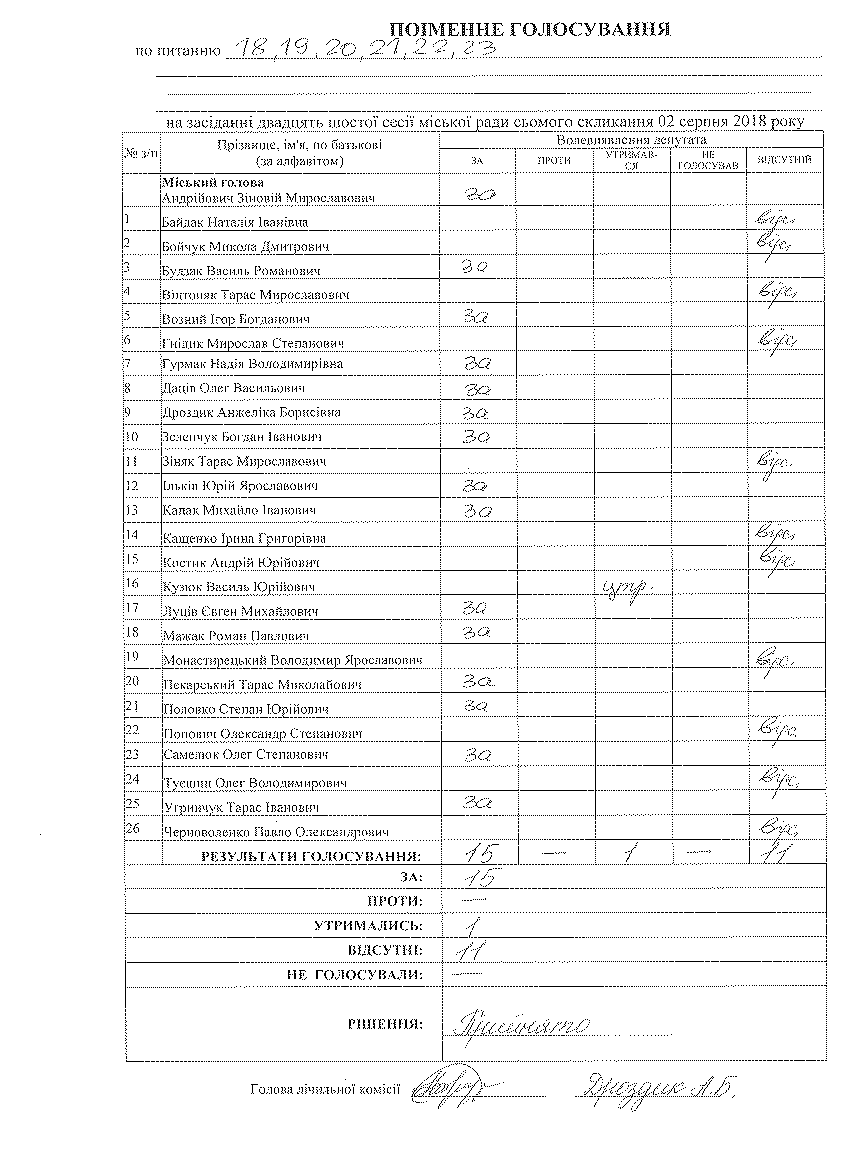 ПОІМЕННЕ ГОЛОСУВАННЯ
по питанню 18, 19, 20, 21, 22, 23
на засіданні двадцять шостої сесії міської ради сьомого скликання 02 серпня 2018 року
№ з/п Прізвище, ім'я, по батькові (за алфавітом) Волевиявлення депутата
ЗА ПРОТИ УТРИМАВ-СЯ НЕ ГОЛОСУВАВ ВІДСУТНІЙ
Міський голова
Андрійович Зіновій Мирославович за
1 Байдак Наталія Іванівна відс.
2 Бойчук Микола Дмитрович відс.
3 Будзак Василь Романович за
4 Вінтоняк Тарас Мирославович відс.
5 Возний Ігор Богданович за
6 Гнідик Мирослав Степанович відс.
7 Гурмак Надія Володимирівна за
8 Даців Олег Васильович за
9 Дроздик Анжеліка Борисівна за
10 Зеленчук Богдан Іванович за
11 Зіняк Тарас Мирославович відс.
12 Ільків Юрій Ярославович за
13 Капак Михайло Іванович за
14 Кащенко Ірина Григорівна відс.
15 Костик Андрій Юрійович відс.
16 Кузюк Василь Юрійович утр.
17 Луців Євген Михайлович за
18 Мажак Роман Павлович за
19 Монастирецький Володимир Ярославович відс.
20 Пекарський Тарас Миколайович за
21 Половко Степан Юрійович за
22 Попович Олександр Степанович відс.
23 Самелюк Олег Степанович за
24 Туєшин Олег Володимирович відс.
25 Угринчук Тарас Іванович за
26 Черноволенко Павло Олександрович відс.
РЕЗУЛЬТАТИ ГОЛОСУВАННЯ: 15 — 1 — 11
ЗА: 15
ПРОТИ: —
УТРИМАЛИСЬ: 1
ВІДСУТНІ: 11
НЕ ГОЛОСУВАЛИ: —
РІШЕННЯ: Прийнято
Голова лічильної комісії Дроздик А.Б.